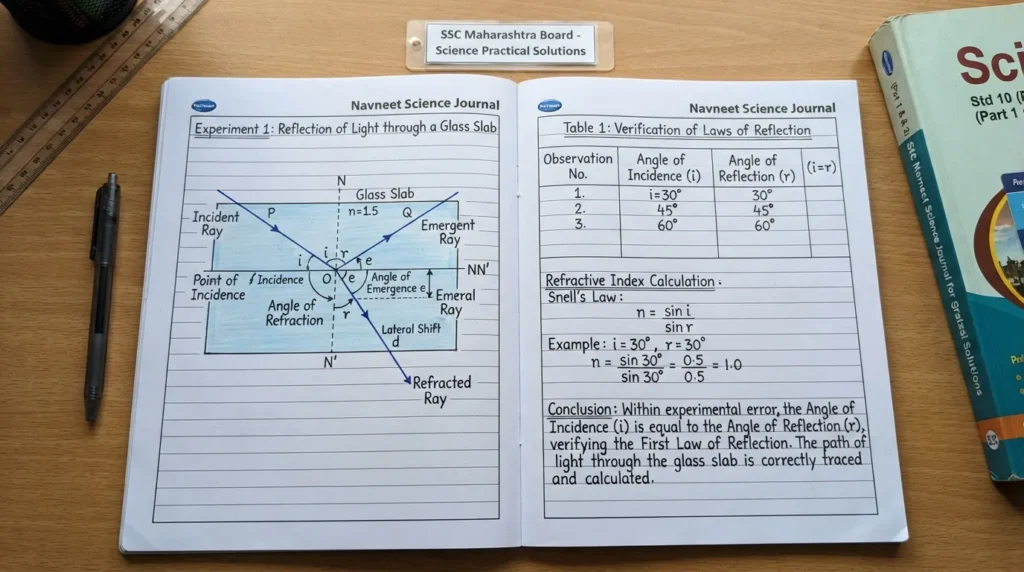 SSC Maharashtra Board -
Science Practical Solutions
Navneet Science Journal
Experiment 1: Reflection of Light through a Glass Slab
N
Glass Slab
P
n=1.5
Q
Incident
Ray
Emergent
Ray
i
i
r
e
NN'
Point of
Incidence
Incidence
O
e
Angle of
Emergence e
Angle of
Refraction
r
Emeral
Ray
Lateral Shift
d
N'
Refracted
Ray
Navneet Science Journal
Table 1: Verification of Laws of Reflection
Observation No. Angle of Incidence (i) Angle of Reflection (r) (i=r)
1. i=30° 30°
2. 45° 45°
3. 60° 60°
Refractive Index Calculation.
Snell's Law:
n = sin i / sin r
Example: i = 30°, r = 30°
n = sin 30° / sin 30° = 0.5 / 0.5 = 1.0
Conclusion: Within experimental error, the Angle of
Incidence (i) is equal to the Angle of Reflection (r),
verifying the First Law of Reflection. The path of
light through the glass slab is correctly traced
and calculated.
Sci
Std 10 (
(Part 1
(Part 1 & 2)